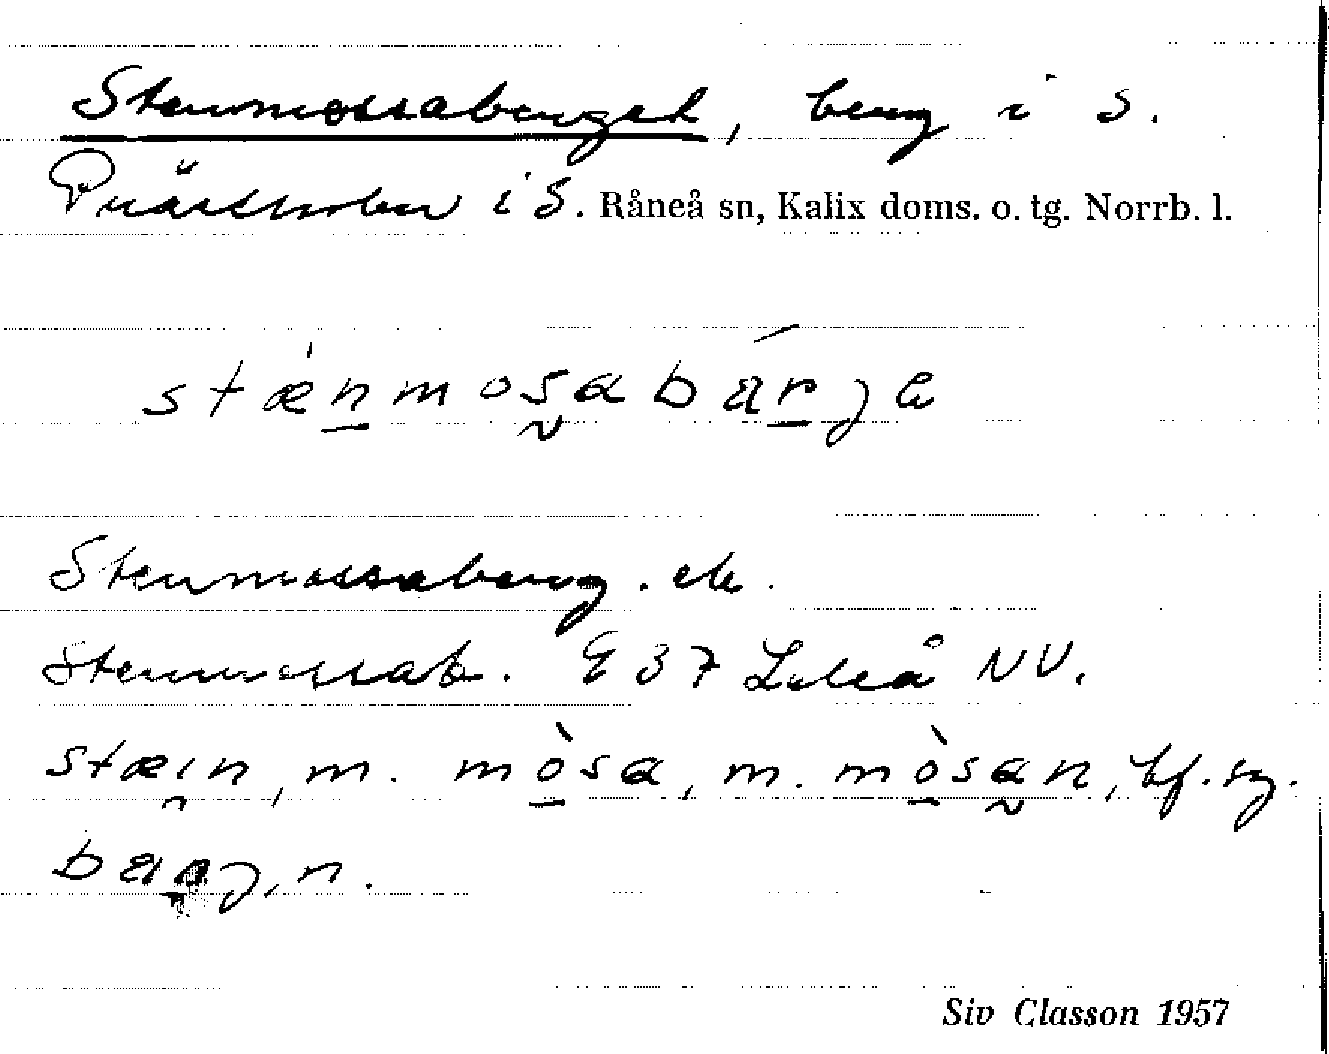 Stenmossaberget, berg i S.
Prästholm i S. Råneå sn, Kalix doms. o. tg. Norrb. l.
stænmosabarje
Stenmossaberg. ek.
Stenmossab. E 37 Luleå NV.
stæin, m. mòsa, m. mòsan, bf. sg.
barj, n.
Siv Classon 1957